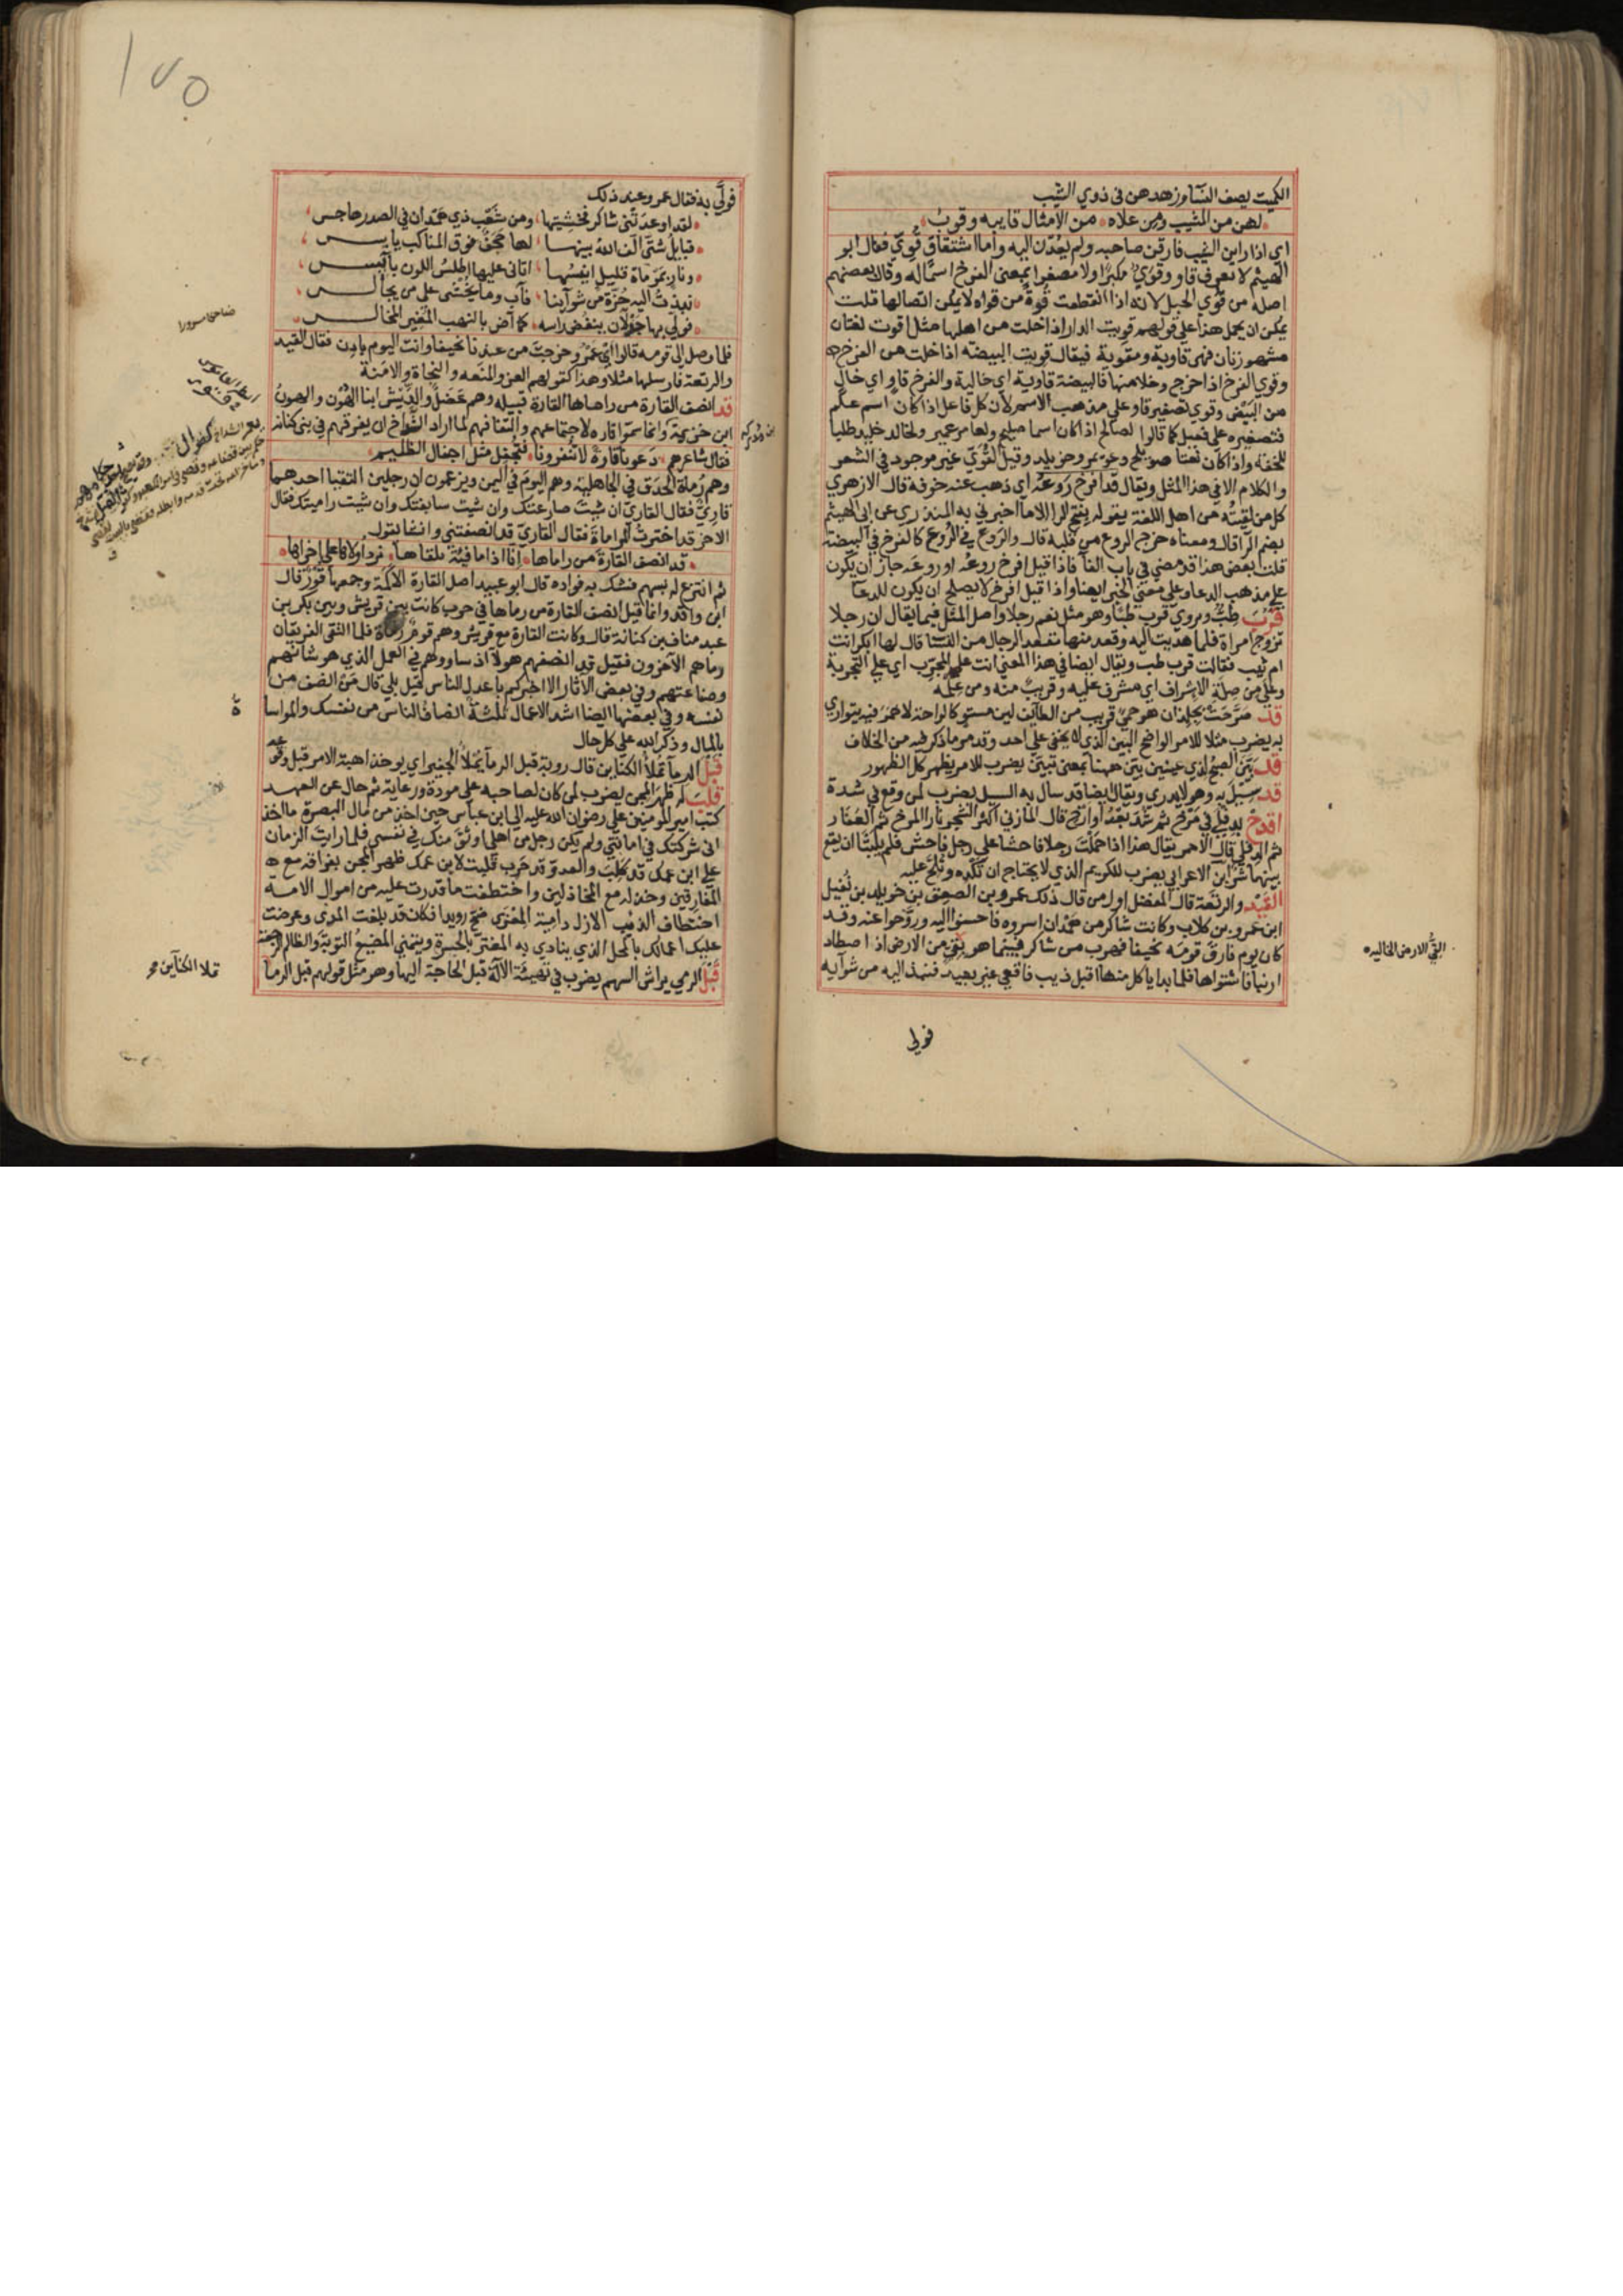 الكميت يصف النسآ وزهدهن في ذوي الشيب
لهن من المشيب ومن علاه من الامثال قايبه وقوب
اي اذا راين الشيب فارقن صاحبه ولم يعُدن اليه واما اشتقاق قُوَيّ فقال ابو
الهيثم لا نعرف قاو وقوي مكبرا ولا مصغرا بمعنى الفرخ اسما له وقال بعضهم
اصله من قوي الحبل لانه اذا انقطعت قوة من قواه لا يمكن اتصالها قلت
يمكن ان يحمل هذا على قولهم قويت الدار اذا خلت من اهلها مثل اقوت لغتان
مشهورتان فهى قاوية ومقوية فيقال قويت البيضة اذا خلت من الفرخ
وقوي الفرخ اذا خرج وخلا منها فالبيضة قاوية اي خالية والفرخ قاو اي خال
من البيض وقوي تصغير قاو على مذهب الاسم لان كل فاعل اذا كان اسم علم
فتصغيره على فعيل كما قالوا لصالح اذا كان اسما صليح ولعامر عمير ولخالد خليد طلبا
للخفة واذا كان نعتا صويلح وعويمر وخويلد وقيل القوي غير موجود في الشعر
والكلام الا في هذا المثل ويقال قد افرخ روعه اي ذهب عنه خوفه قال الازهري
كل من لقيته من اهل اللغة يقوله بفتح الرا الا ما اخبرني به المنذري عن ابي الهيثم
بضم الرا قال ومعناه خرج الروع من قلبه قال والروع في الروع كالفرخ في البيضة
قلت بعض هذا قد مضى في باب الفآ فاذا قيل افرخ روعه او روعه جاز ان يكون
على مذهب الدعا وعلى معنى الخبر ايضا واذا قيل افرخ لا يصلح ان يكون للدعآ
قرب طب ويروي قرب طبا وهو مثل نعم رجلا واصل المثل فيما يقال ان رجلا
تزوج امراة فلما هديت اليه وقعد منها مقعد الرجال من النسا قال لها ابكر انت
ام ثيب فقالت قرب طب ويقال ايضا في هذا المعني انت على المجرب اي على التجربة
وعلى من صلة الاشراف اي مشرف عليه وقريب منه ومن علمه
قد صرحت بجلذان هو حمى قريب من الطايف لين مستو كالراحة لا خمر فيه يتواري
به يضرب مثلا للامر الواضح البين الذي لا يخفى على احد وقد مر ما ذكر فيه من الخلاف
قد بين الصبح لذي عينين بين ههنا بمعنى تبين يضرب للامر يظهر كل الظهور
قد سيل به وهو لا يدري ويقال ايضا قد سال به السيل يضرب لمن وقع في شدة
اقدح بدفلى في مرخ ثم شد بعد او ارخ قال المازني اكثر الشجر نارا المرخ ثم العفار
ثم الدفلى قال الاحمر يقال هذا اذا حملت رجلا فاحشا على رجل فاحش فلم يلبثا ان يقع
بينهما شر ابن الاعرابي يضرب للكريم الذي لا يحتاج ان تكده وتلح عليه
القيد والرتعة قال المفضل اول من قال ذلك عمرو بن الصعق بن خويلد بن نفيل
ابن عمرو بن كلاب وكانت شاكر من همدان اسروه فاحسنوا اليه وروحوا عنه وقد
كان يوم فارق قومه نحيفا فهرب من شاكر فبينما هو بقي من الارض اذ اصطاد
ارنبا فاشتواها فلما بدا ياكل منها اقبل ذيب فاقعى غير بعيد فنبذ اليه من شوآيه
القيُّ الارض الخاليه
فولي
١٧٥
فولَّي به فقال عمرو عند ذلك
لقد اوعدتني شاكر فخشيتها ومن شعب ذي همدان في الصدر هاجس
قبايل شتى الف الله بينها لها حجف فوق المناكب يابس
ونار بمرماة قليل انيسها اتاني عليها اطلس اللون بآيس
نبذت اليه حزة من شوآينا فآب وما يخشى على من يجالس
فولي بها جذلان ينفض راسه كما آض بالنهب المغير المخالس
فلما وصل الى قومه قالوا اي عمرو خرجت من عندنا نحيفا وانت اليوم بادن فقال القيد
والرتعة فارسلها مثلا وهذا كقولهم العز والمنعه والنجاة والامنة
قد انصف القارة من راماها القارة قبيله وهم عضل والديش ابنا الهون والهون
ابن خزيمة وانما سموا قاره لاجتماعهم والتفافهم لما اراد الشداخ ان يفرقهم في بني كنانه
فقال شاعرهم دعونا قارة لا تنفرونا فنجفل مثل اجفال الظليم
وهم رماة الحدق في الجاهلية وهم اليوم في اليمن ويزعمون ان رجلين التقيا احدهما
قاريّ فقال القاري ان شيت صارعتك وان شيت سابقتك وان شيت راميتك فقال
الاخر قد اخترت المراماة فقال القاري قد انصفتني وانشا يقول
قد انصف القارة من راماها انا اذا ما فية نلقاها نرد اولاها على اخراها
ثم انتزع له بسهم فشك به فواده قال ابو عبيد اصل القارة الاكمة وجمعها قور قال
ابن واقد وانما قيل انصف القارة من رماها في حرب كانت بين قريش وبين بكر بن
عبد مناف بن كنانة قال وكانت القارة مع قريش وهم قوم رماة فلما التقى الفريقان
رماهم الآخرون فقيل قد انصفهم هولآ اذ ساووهم في العمل الذي هو شانهم
وصناعتهم وفي بعض الاثار الا اخبركم باعدل الناس قيل بلى قال من انصف من
نفسه وفي بعضها ايضا اشد الاعمال ثلثة انصاف الناس من نفسك والمواسا
بالمال وذكر الله على كل حال
قبل الرمآ تملا الكناين قال روبة قبل الرمآ يملا الجفير اي يوخذ اهبة الامر قبل وقوعه
قلب له ظهر المجن يضرب لمن كان لصاحبه على مودة ورعاية ثم حال عن العهد
كتب امير المومنين على رضوان الله عليه الى ابن عباس حين اخذ من مال البصرة ما اخذ
اني شركتك في امانتي ولم يكن رجل من اهلى اوثق منك في نفسي فلما رايت الزمان
على ابن عمك قد كلب والعدو قد حرب قلبت لابن عمك ظهر المجن بفراقه مع
المفارقين وخذله مع الخاذلين واختطفت ما قدرت عليه من اموال الامة
اختطاف الذئب الازل دامية المعزى ضح رويدا فكان قد بلغت المدى وعرضت
عليك اعمالك بالمحل الذي ينادي به المغتر بالحسرة ويتمني المضيع التوبة والظالم الرجعة
قبل الرمي يراش السهم يضرب في تهيئة الآلة قبل الحاجة اليها وهو مثل قولهم قبل الرما
تملا الكناين